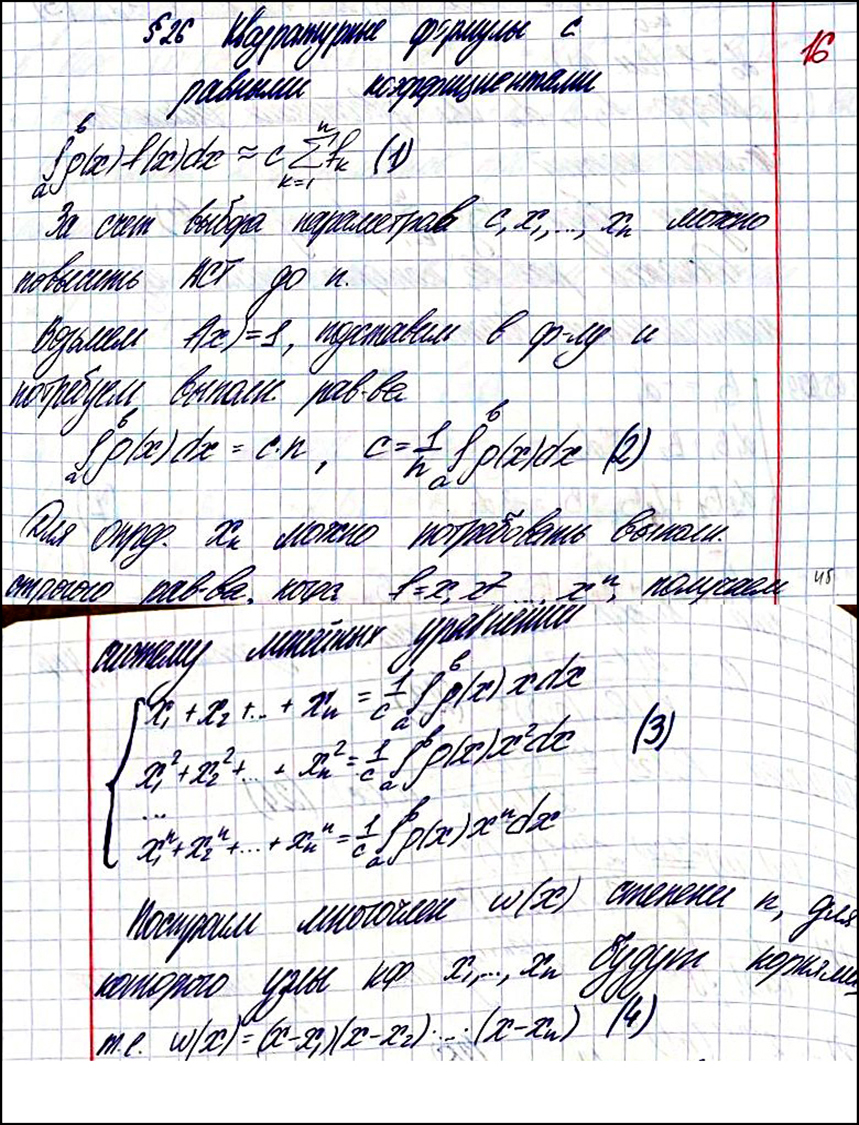 §26 Квадратурные формулы с
16
равными коэффициентами
∫ₐᵇ ρ(x) f(x) dx ≈ c ∑ₖ₌₁ⁿ fₖ (1)
За счет выбора параметров c, x₁, ..., xₙ можно
повысить АСТ до n.
Возьмем f(x)=1, подставим в ф-лу и
потребуем выполн. рав-ва
∫ₐᵇ ρ(x) dx = c·n, c = 1/n ∫ₐᵇ ρ(x) dx (2)
Для опред. xₖ можно потребовать выполн.
строгого рав-ва, когда f=x, x², ..., xⁿ, получаем
систему линейных уравнений
x₁ + x₂ + ... + xₙ = 1/c ∫ₐᵇ ρ(x) x dx
x₁² + x₂² + ... + xₙ² = 1/c ∫ₐᵇ ρ(x) x² dx (3)
...
x₁ⁿ + x₂ⁿ + ... + xₙⁿ = 1/c ∫ₐᵇ ρ(x) xⁿ dx
Построим многочлен w(x) степени n, для
которого узлы кф x₁, ..., xₙ будут корнями,
т.е. w(x) = (x-x₁)(x-x₂)·...·(x-xₙ) (4)